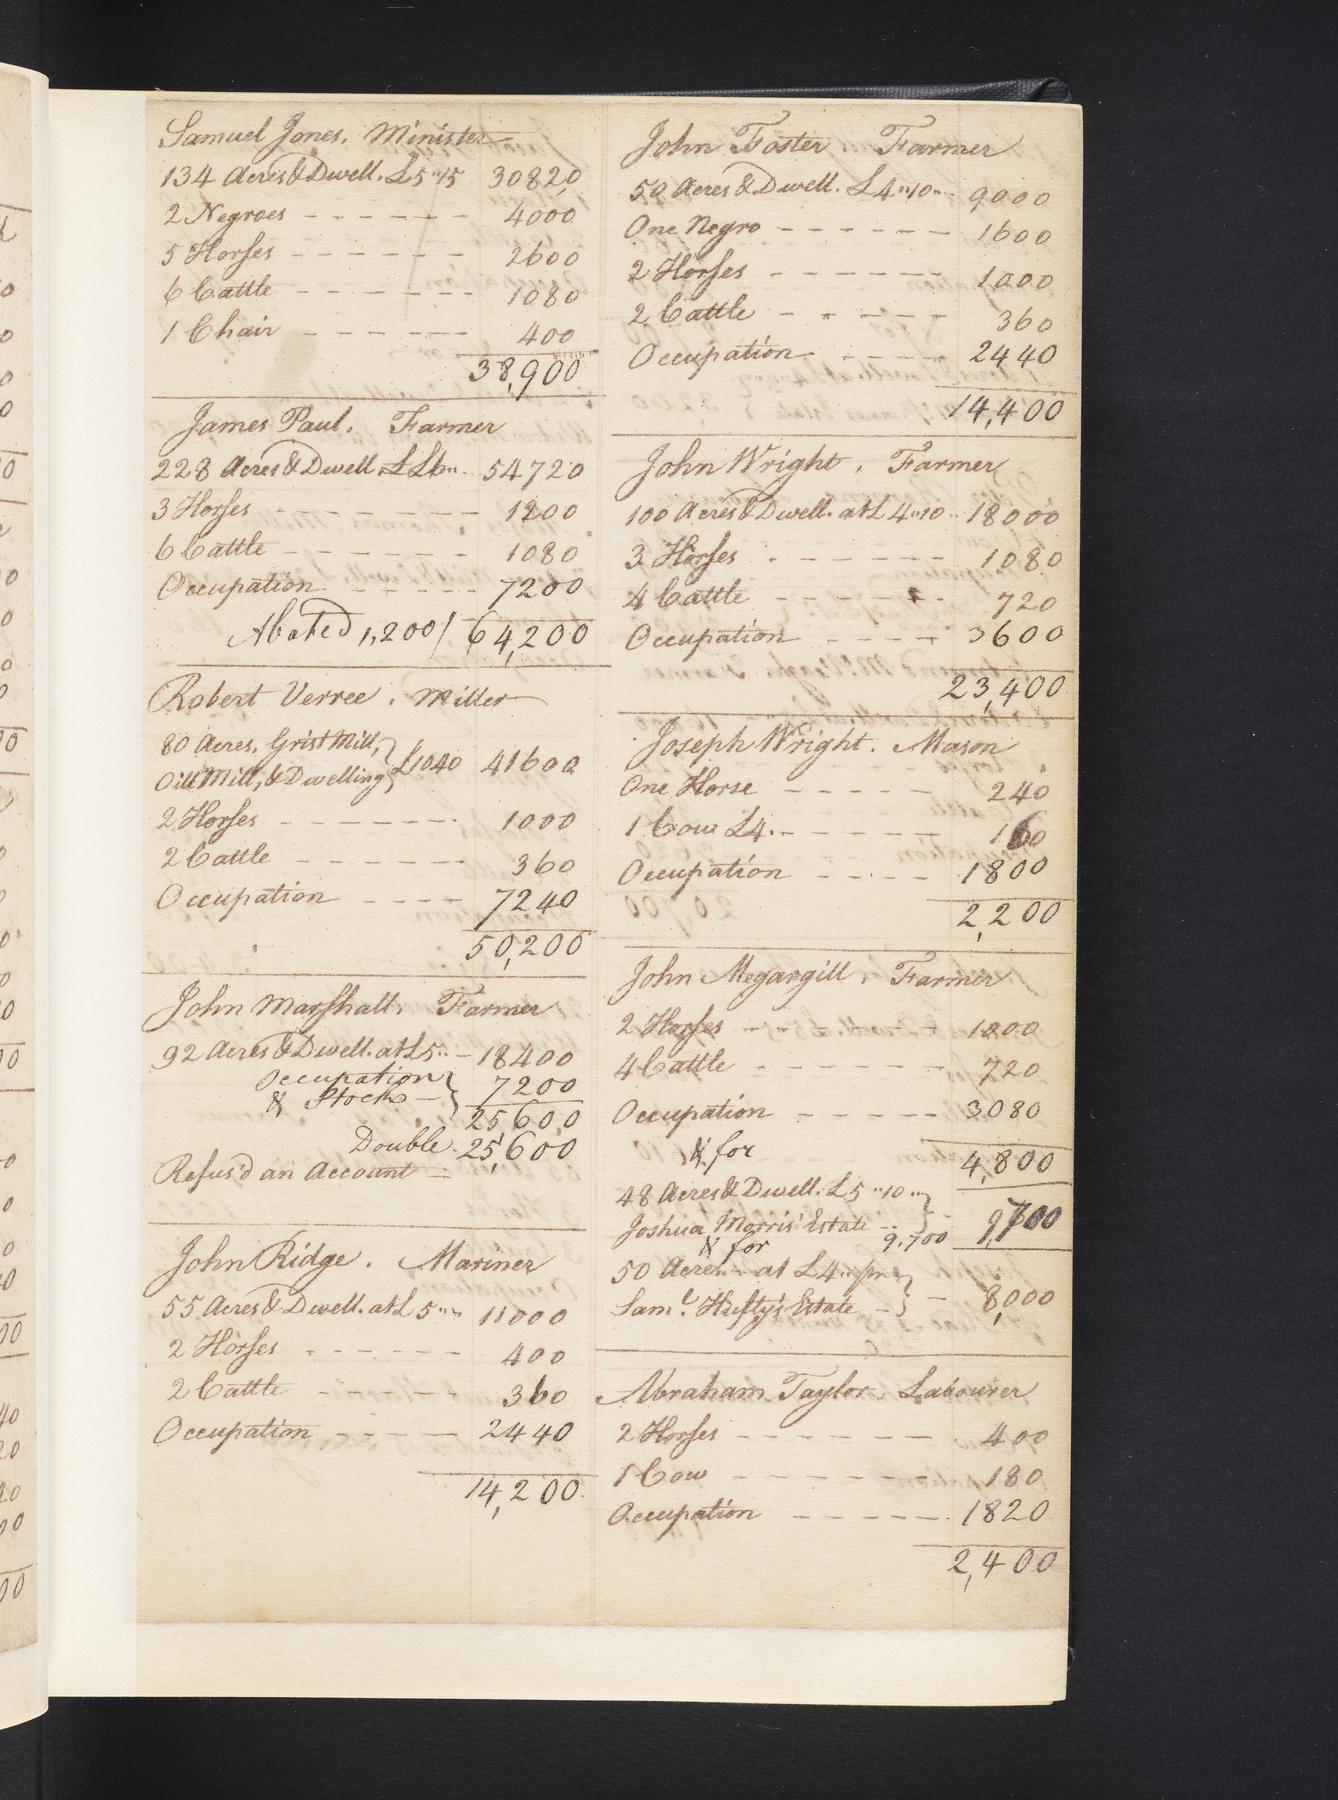 Samuel Jones. Minister
134 Acres & Dwell. £5"15 30820
2 Negroes 4000
5 Horses 2600
6 Cattle 1080
1 Chair 400
38,900
James Paul. Farmer
228 Acres & Dwell. £6 54720
3 Horses 1200
6 Cattle 1080
Occupation 7200
Abated 1,200/ 64,200
Robert Verree. Miller
80 Acres, Grist Mill,
Oill Mill, & Dwelling } £1040 41600
2 Horses 1000
2 Cattle 360
Occupation 7240
50,200
John Marshall. Farmer
92 Acres & Dwell. at £5 18400
Occupation
& Stock } 7200
25600
Double 25,600
Refus'd an Account
John Ridge. Mariner
55 Acres & Dwell. at £5 11000
2 Horses 400
2 Cattle 360
Occupation 2440
14,200
John Foster Farmer
50 Acres & Dwell. £4"10 9000
One Negro 1600
2 Horses 1000
2 Cattle 360
Occupation 2440
14,400
John Wright. Farmer
100 Acres & Dwell. at £4"10 18000
3 Horses 1080
4 Cattle 720
Occupation 3600
23,400
Joseph Wright. Mason
One Horse 240
1 Cow £4. 160
Occupation 1800
2,200
John Megargill. Farmer
2 Horses 1000
4 Cattle 720
Occupation 3080
& for 4,800
48 Acres & Dwell. £5"10
Joshua Morris' Estate 9.700 9,700
& for
50 Acres at £4 pr
Saml. Hufty's Estate 8,000
Abraham Taylor. Labourer
2 Horses 400
1 Cow 180
Occupation 1820
2,400